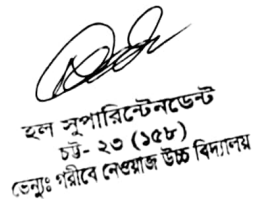 হল সুপারিন্টেনডেন্ট
চট্ট- ২৩ (১৫৮)
ভেন্যুঃ গরীবে নেওয়াজ উচ্চ বিদ্যালয়